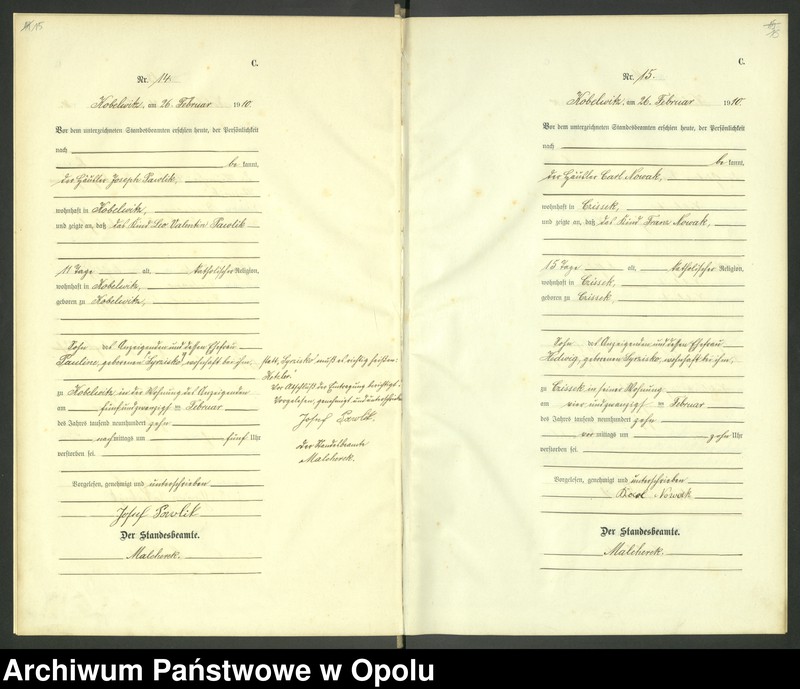 C.
Nr. 14.
Kobelwitz, am 26. Februar 1910.
Vor dem unterzeichneten Standesbeamten erschien heute, der Persönlichkeit
nach
be kannt,
der Häusler Joseph Pawlik,
wohnhaft in Kobelwitz,
und zeigte an, daß das Kind Leo Valentin Pawlik
11 Tage alt, katholischer Religion,
wohnhaft in Kobelwitz,
geboren zu Kobelwitz,
Sohn des Anzeigenden und dessen Ehefrau
Pauline, geborenen "Syrzisko", wohnhaft bei ihm,
zu Kobelwitz in der Wohnung des Anzeigenden
am fünfundzwanzigsten Februar
des Jahres tausend neunhundert zehn
nachmittags um fünf Uhr
verstorben sei.
Vorgelesen, genehmigt und unterschrieben
Josef Pawlik
Der Standesbeamte.
Malcherek.
statt "Syrzisko" muß es richtig heißen:
Vor Abschluß der Eintragung berichtigt.
Vorgelesen, genehmigt und unterschrieben
Josef Pawlik
Der Standesbeamte
Malcherek.
15
C.
Nr. 15.
Kobelwitz, am 26. Februar 1910.
Vor dem unterzeichneten Standesbeamten erschien heute, der Persönlichkeit
nach
be kannt,
der Häusler Carl Nowak,
wohnhaft in Czissek,
und zeigte an, daß das Kind Franz Nowak,
15 Tage alt, katholischer Religion,
wohnhaft in Czissek,
geboren zu Czissek,
Sohn des Anzeigenden und dessen Ehefrau
Hedwig, geborenen Syrzisko, wohnhaft bei ihm,
zu Czissek in seiner Wohnung
am vierundzwanzigsten Februar
des Jahres tausend neunhundert zehn
vormittags um zehn Uhr
verstorben sei.
Vorgelesen, genehmigt und unterschrieben
Nowak
Der Standesbeamte.
Malcherek.
Archiwum Państwowe w Opolu